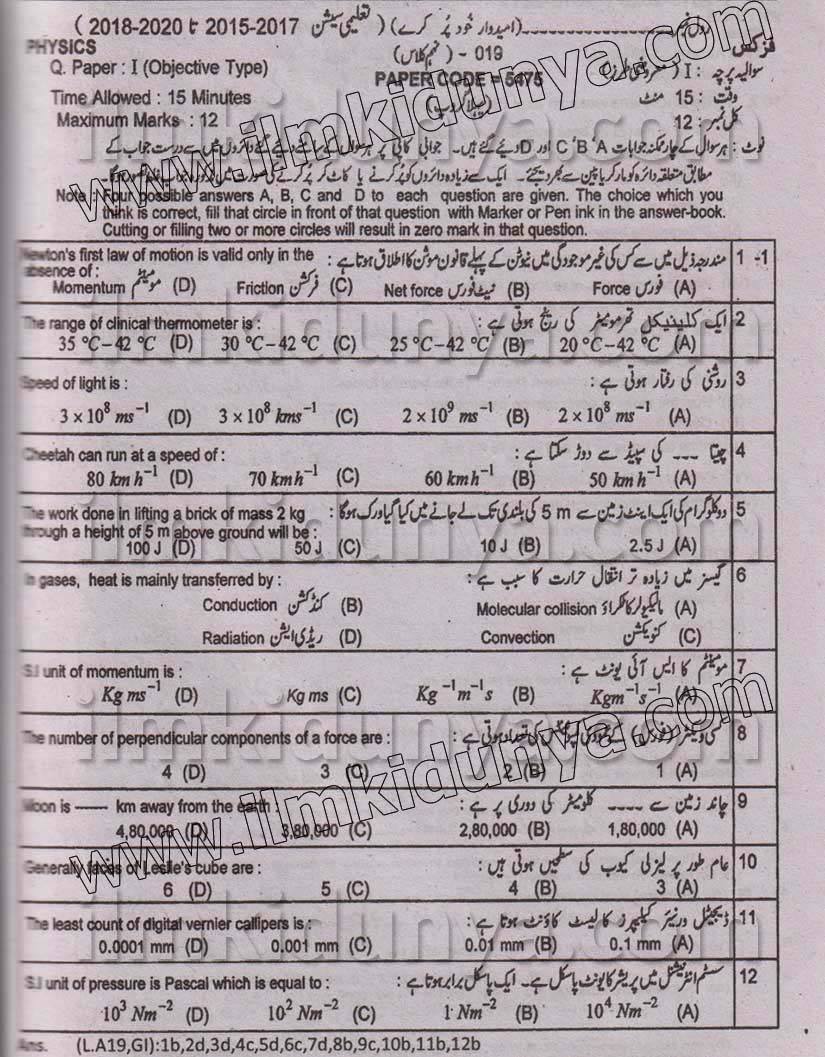 ( 2018-2020 تا 2015-2017 تعلیمی سیشن ) (امیدوار خود پُر کرے)
PHYSICS 019 - (نہم کلاس) فزکس
Q. Paper : I (Objective Type) PAPER CODE = 5475 سوالیہ پرچہ : I (معروضی طرز)
Time Allowed : 15 Minutes (پہلا گروپ) وقت : 15 منٹ
Maximum Marks : 12 کل نمبر : 12
نوٹ : ہر سوال کے چار ممکنہ جوابات A، B، C اور D دیئے گئے ہیں۔ جوابی کاپی پر ہر سوال کے سامنے دیئے گئے دائروں میں سے درست جواب کے
مطابق متعلقہ دائرہ کو مارکر یا پین سے بھر دیجئے۔ ایک سے زیادہ دائروں کو پُر کرنے یا کاٹ کر پُر کرنے کی صورت میں
Note : Four possible answers A, B, C and D to each question are given. The choice which you
think is correct, fill that circle in front of that question with Marker or Pen ink in the answer-book.
Cutting or filling two or more circles will result in zero mark in that question.
Newton's first law of motion is valid only in the مندرجہ ذیل میں سے کس کی غیر موجودگی میں نیوٹن کے پہلے قانون موشن کا اطلاق ہوتا ہے : 1 -1
absence of :
Momentum مومینٹم (D) Friction فرکشن (C) Net force نیٹ فورس (B) Force فورس (A)
The range of clinical thermometer is : ایک کلینیکل تھرمومیٹر کی رینج ہوتی ہے : 2
35 °C – 42 °C (D) 30 °C – 42 °C (C) 25 °C – 42 °C (B) 20 °C – 42 °C (A)
Speed of light is : روشنی کی رفتار ہوتی ہے : 3
3 × 10⁸ ms⁻¹ (D) 3 × 10⁸ kms⁻¹ (C) 2 × 10⁹ ms⁻¹ (B) 2 × 10⁸ ms⁻¹ (A)
Cheetah can run at a speed of : چیتا --- کی سپیڈ سے دوڑ سکتا ہے : 4
80 km h⁻¹ (D) 70 km h⁻¹ (C) 60 km h⁻¹ (B) 50 km h⁻¹ (A)
The work done in lifting a brick of mass 2 kg دو کلوگرام کی ایک اینٹ زمین سے 5 m کی بلندی تک لے جانے میں کیا گیا ورک ہوگا : 5
through a height of 5 m above ground will be :
100 J (D) 50 J (C) 10 J (B) 2.5 J (A)
In gases, heat is mainly transferred by : گیسز میں زیادہ تر انتقال حرارت کا سبب ہے : 6
Conduction کنڈکشن (B) Molecular collision مالیکیولر کا ٹکراؤ (A)
Radiation ریڈی ایشن (D) Convection کنویکشن (C)
S.I unit of momentum is : مومینٹم کا ایس آئی یونٹ ہے : 7
Kg ms⁻¹ (D) Kg ms (C) Kg⁻¹ m⁻¹ s (B) Kgm⁻¹s⁻¹ (A)
The number of perpendicular components of a force are : کی تعداد ہوتی ہے : 8
4 (D) 3 (C) 2 (B) 1 (A)
Moon is ------ km away from the earth : چاند زمین سے ---- کلومیٹر کی دوری پر ہے : 9
4,80,000 (D) 3,80,000 (C) 2,80,000 (B) 1,80,000 (A)
Generally faces of Leslie's cube are : عام طور پر لیزلی کیوب کی سطحیں ہوتی ہیں : 10
6 (D) 5 (C) 4 (B) 3 (A)
The least count of digital vernier callipers is : ڈیجیٹل ورنیئر کیلیپرز کا لیسٹ کاؤنٹ ہوتا ہے : 11
0.0001 mm (D) 0.001 mm (C) 0.01 mm (B) 0.1 mm (A)
S.I unit of pressure is Pascal which is equal to : سسٹم انٹرنیشنل میں پریشر کا یونٹ پاسکل ہے۔ ایک پاسکل برابر ہوتا ہے : 12
10³ Nm⁻² (D) 10² Nm⁻² (C) 1 Nm⁻² (B) 10⁴ Nm⁻² (A)
Ans. (L.A19,GI):1b,2d,3d,4c,5d,6c,7d,8b,9c,10b,11b,12b
www.ilmkidunya.com
www.ilmkidunya.com
ilmkidunya.com
ilmkidunya.com
ilmkidunya.com
ilmkidunya.com
ilmkidunya.com